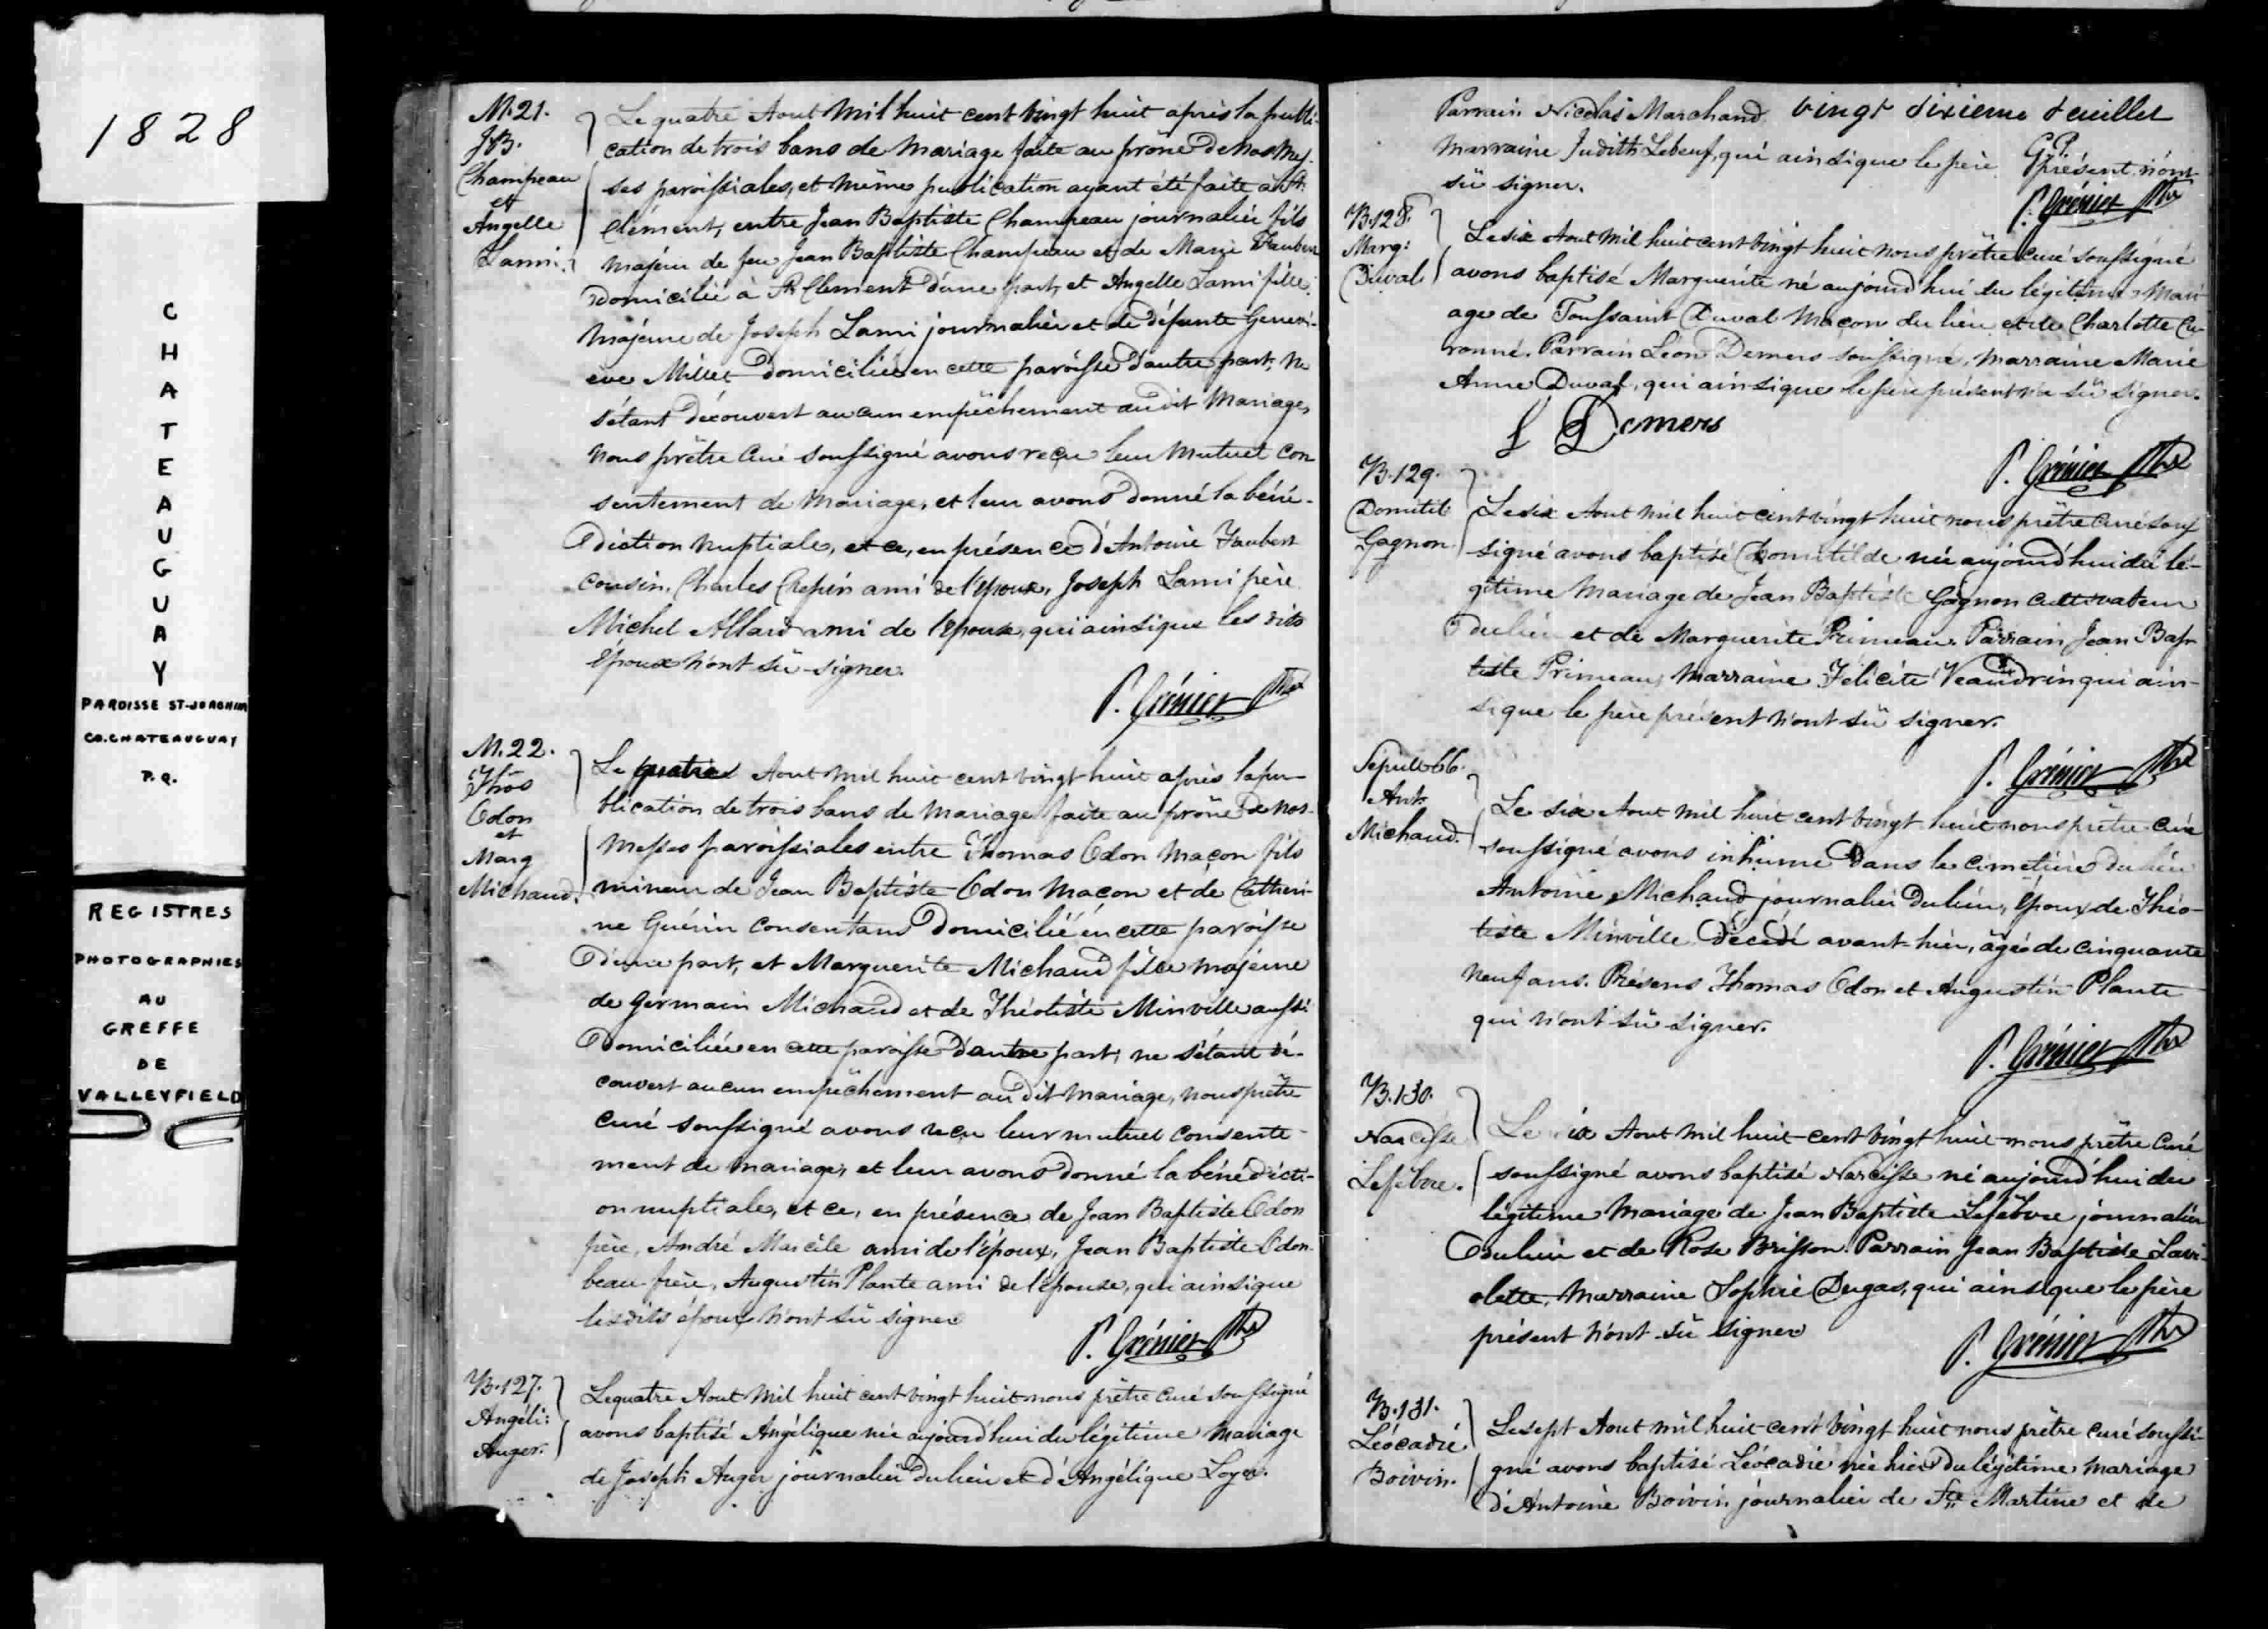 1828
CHATEAUGUAY
PAROISSE ST-JOACHIM
CO. CHATEAUGUAY
P.Q.
REGISTRES
PHOTOGRAPHIES
AU
GREFFE
DE
VALLEYFIELD
M. 21.
JB.
Champeau
et
Angelle
Lami.
Le quatre Aout mil huit cent vingt huit après la publi-
cation de trois bans de mariage faite au prône de nos mes-
ses paroissiales, et même publication ayant été faite à St.
Clément, entre Jean Baptiste Champeau journalier fils
majeur de feu Jean Baptiste Champeau et de Marie Faubert
domicilié à St. Clement d'une part, et Angelle Lami fille
majeure de Joseph Lami journalier et de défunte Genevi-
eve Millet domiciliée en cette paroisse d'autre part, ne
s'étant découvert aucun empêchement au dit mariage,
nous prêtre curé soussigné avons reçu leur mutuel con
sentement de mariage, et leur avons donné la béné-
diction nuptiale, et ce, en présence d'Antoine Faubert
cousin, Charles Crepin ami de l'époux, Joseph Lami père
Michel Allard ami de l'épouse, qui ainsi que les dits
époux n'ont sû signer.
P. Grénier Ptre
M. 22.
Thos
Odon
et
Marg
Michaud.
Le quatre Aout mil huit cent vingt huit après la pu-
blication de trois bans de mariage faite au prône de nos
messes paroissiales entre Thomas Odon maçon fils
mineur de Jean Baptiste Odon maçon et de Catheri-
ne Guérin consentans domicilié en cette paroisse
d'une part, et Marguerite Michaud fille majeure
de Germain Michaud et de Théotiste Minville aussi
domiciliée en cette paroisse d'autre part; ne s'étant dé-
couvert aucun empêchement au dit mariage, nous prêtre
curé soussigné avons reçu leur mutuel consente-
ment de mariage, et leur avons donné la bénédicti-
on nuptiale, et ce, en présence de Jean Baptiste Odon
père, André Marcile ami de l'époux, Jean Baptiste Odon
beau-frère, Augustin Plante ami de l'épouse, qui ainsi que
lesdits époux n'ont sû signer
P. Grénier Ptre
B. 127.
Angéli:
Auger.
Le quatre Aout mil huit cent vingt huit nous prêtre curé soussigné
avons baptisé Angélique née aujourd'hui du légitime mariage
de Joseph Auger journalier du lieu et d'Angélique Loyer.
Parrain Nicolas Marchand vingt sixieme feuillet
G.P.
marraine Judith Lebeuf, qui ainsi que le père présent n'ont
sû signer.
P. Grénier Ptre
B. 128.
Marg:
Duval
Le six Aout mil huit cent vingt huit nous prêtre curé soussigné
avons baptisé Marguerite né aujourd'hui du légitime mari-
age de Toussaint Duval maçon du lieu et de Charlotte Cu-
ronné. Parrain Léon Demers soussigné, marraine Marie
Anne Duval, qui ainsi que le père présent n'a sû signer.
L Demers
P. Grénier Ptre
B. 129.
Domitil:
Gagnon
Le six Aout mil huit cent vingt huit nous prêtre curé sous
signé avons baptisé Domitilde née aujourd'hui du lé-
gitime mariage de Jean Baptiste Gagnon cultivateur
du lieu et de Marguerite Primeau. Parrain Jean Bap-
tiste Primeau, marraine Félicité Veaudrin qui ain-
si que le père présent n'ont sû signer.
P. Grénier Ptre
Sépult 66.
Ant.
Michaud.
Le six Aout mil huit cent vingt huit nous prêtre curé
soussigné avons inhumé dans le cimetière du lieu
Antoine Michaud journalier du lieu, époux de Théo-
tiste Minville décédé avant-hier, âgé de cinquante
neuf ans. Présens Thomas Odon et Augustin Plante
qui n'ont sû signer.
P. Grénier Ptre
B. 130.
Narcisse
Lefebvre.
Le six Aout mil huit cent vingt huit nous prêtre curé
soussigné avons baptisé Narcisse né aujourd'hui du
légitime mariage de Jean Baptiste Lefebvre journalier
du lieu et de Rose Brisson. Parrain Jean Baptiste Lavi-
olette, marraine Sophie Dugas, qui ainsi que le père
présent n'ont sû signer
P. Grénier Ptre
B. 131.
Léocadie
Boivin.
Le sept Aout mil huit cent vingt huit nous prêtre curé soussi-
gné avons baptisé Léocadie née hier du légitime mariage
d'Antoine Boivin journalier de Ste Martine et de